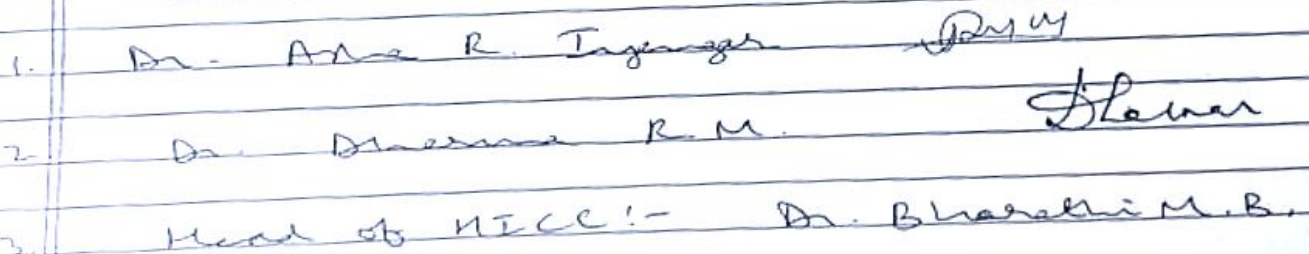 1. Dr. Asha R. Iyengar
2. Dr. Dharma R. M.
3. Head of HICC:- Dr. Bharathi M.B.